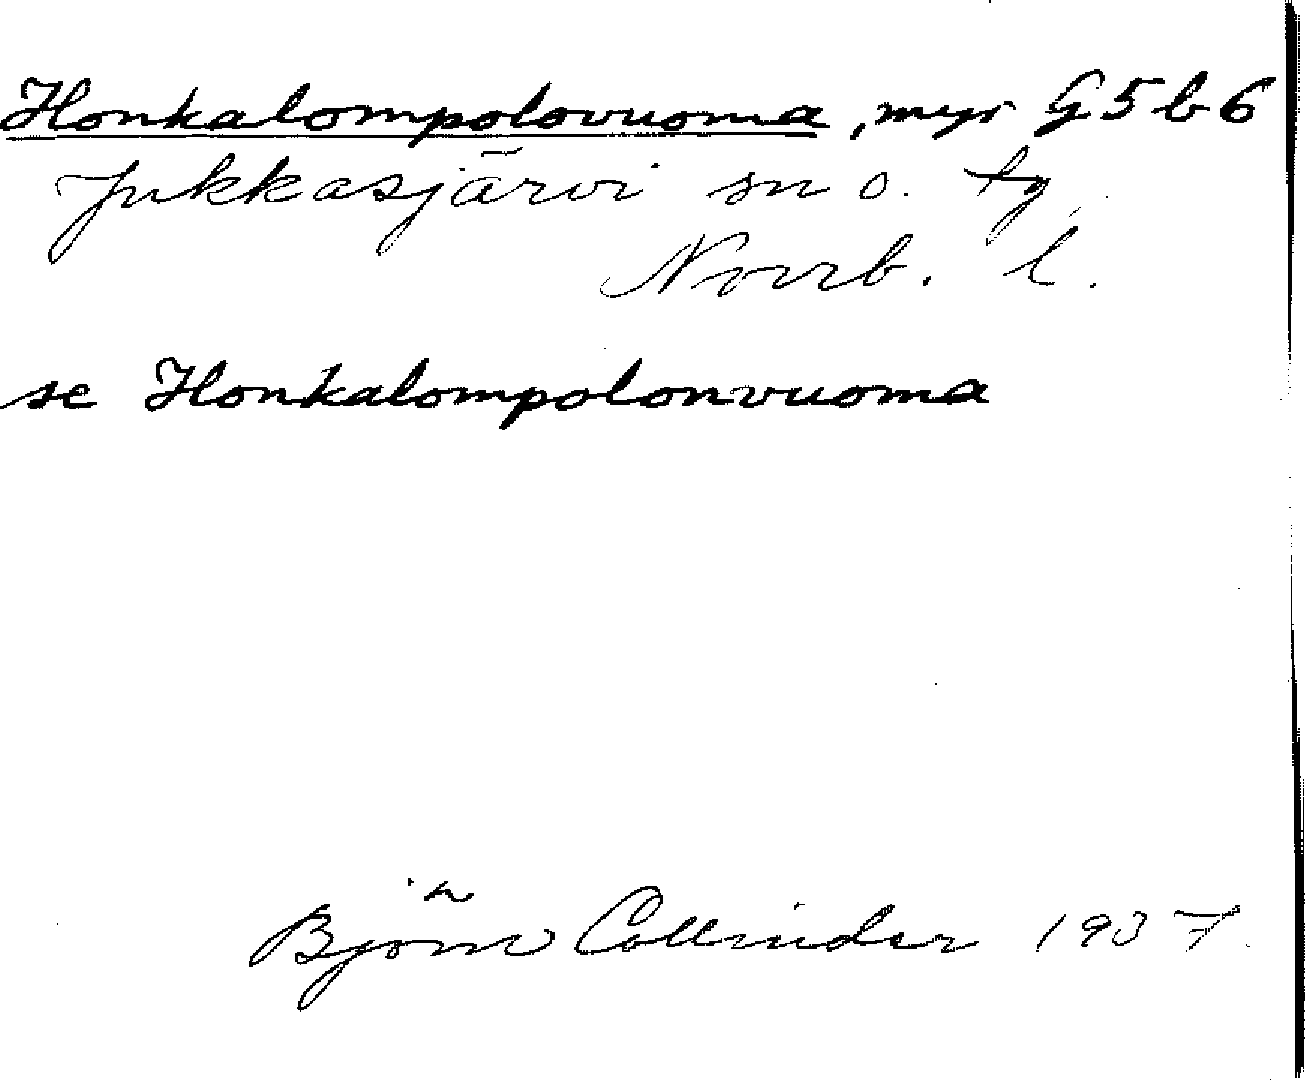 Honkalompolovuoma, myr G5b6
Jukkasjärvi sn o. tg
Norrb. l.
se Honkalompolonvuoma
Björn Collinder 1937